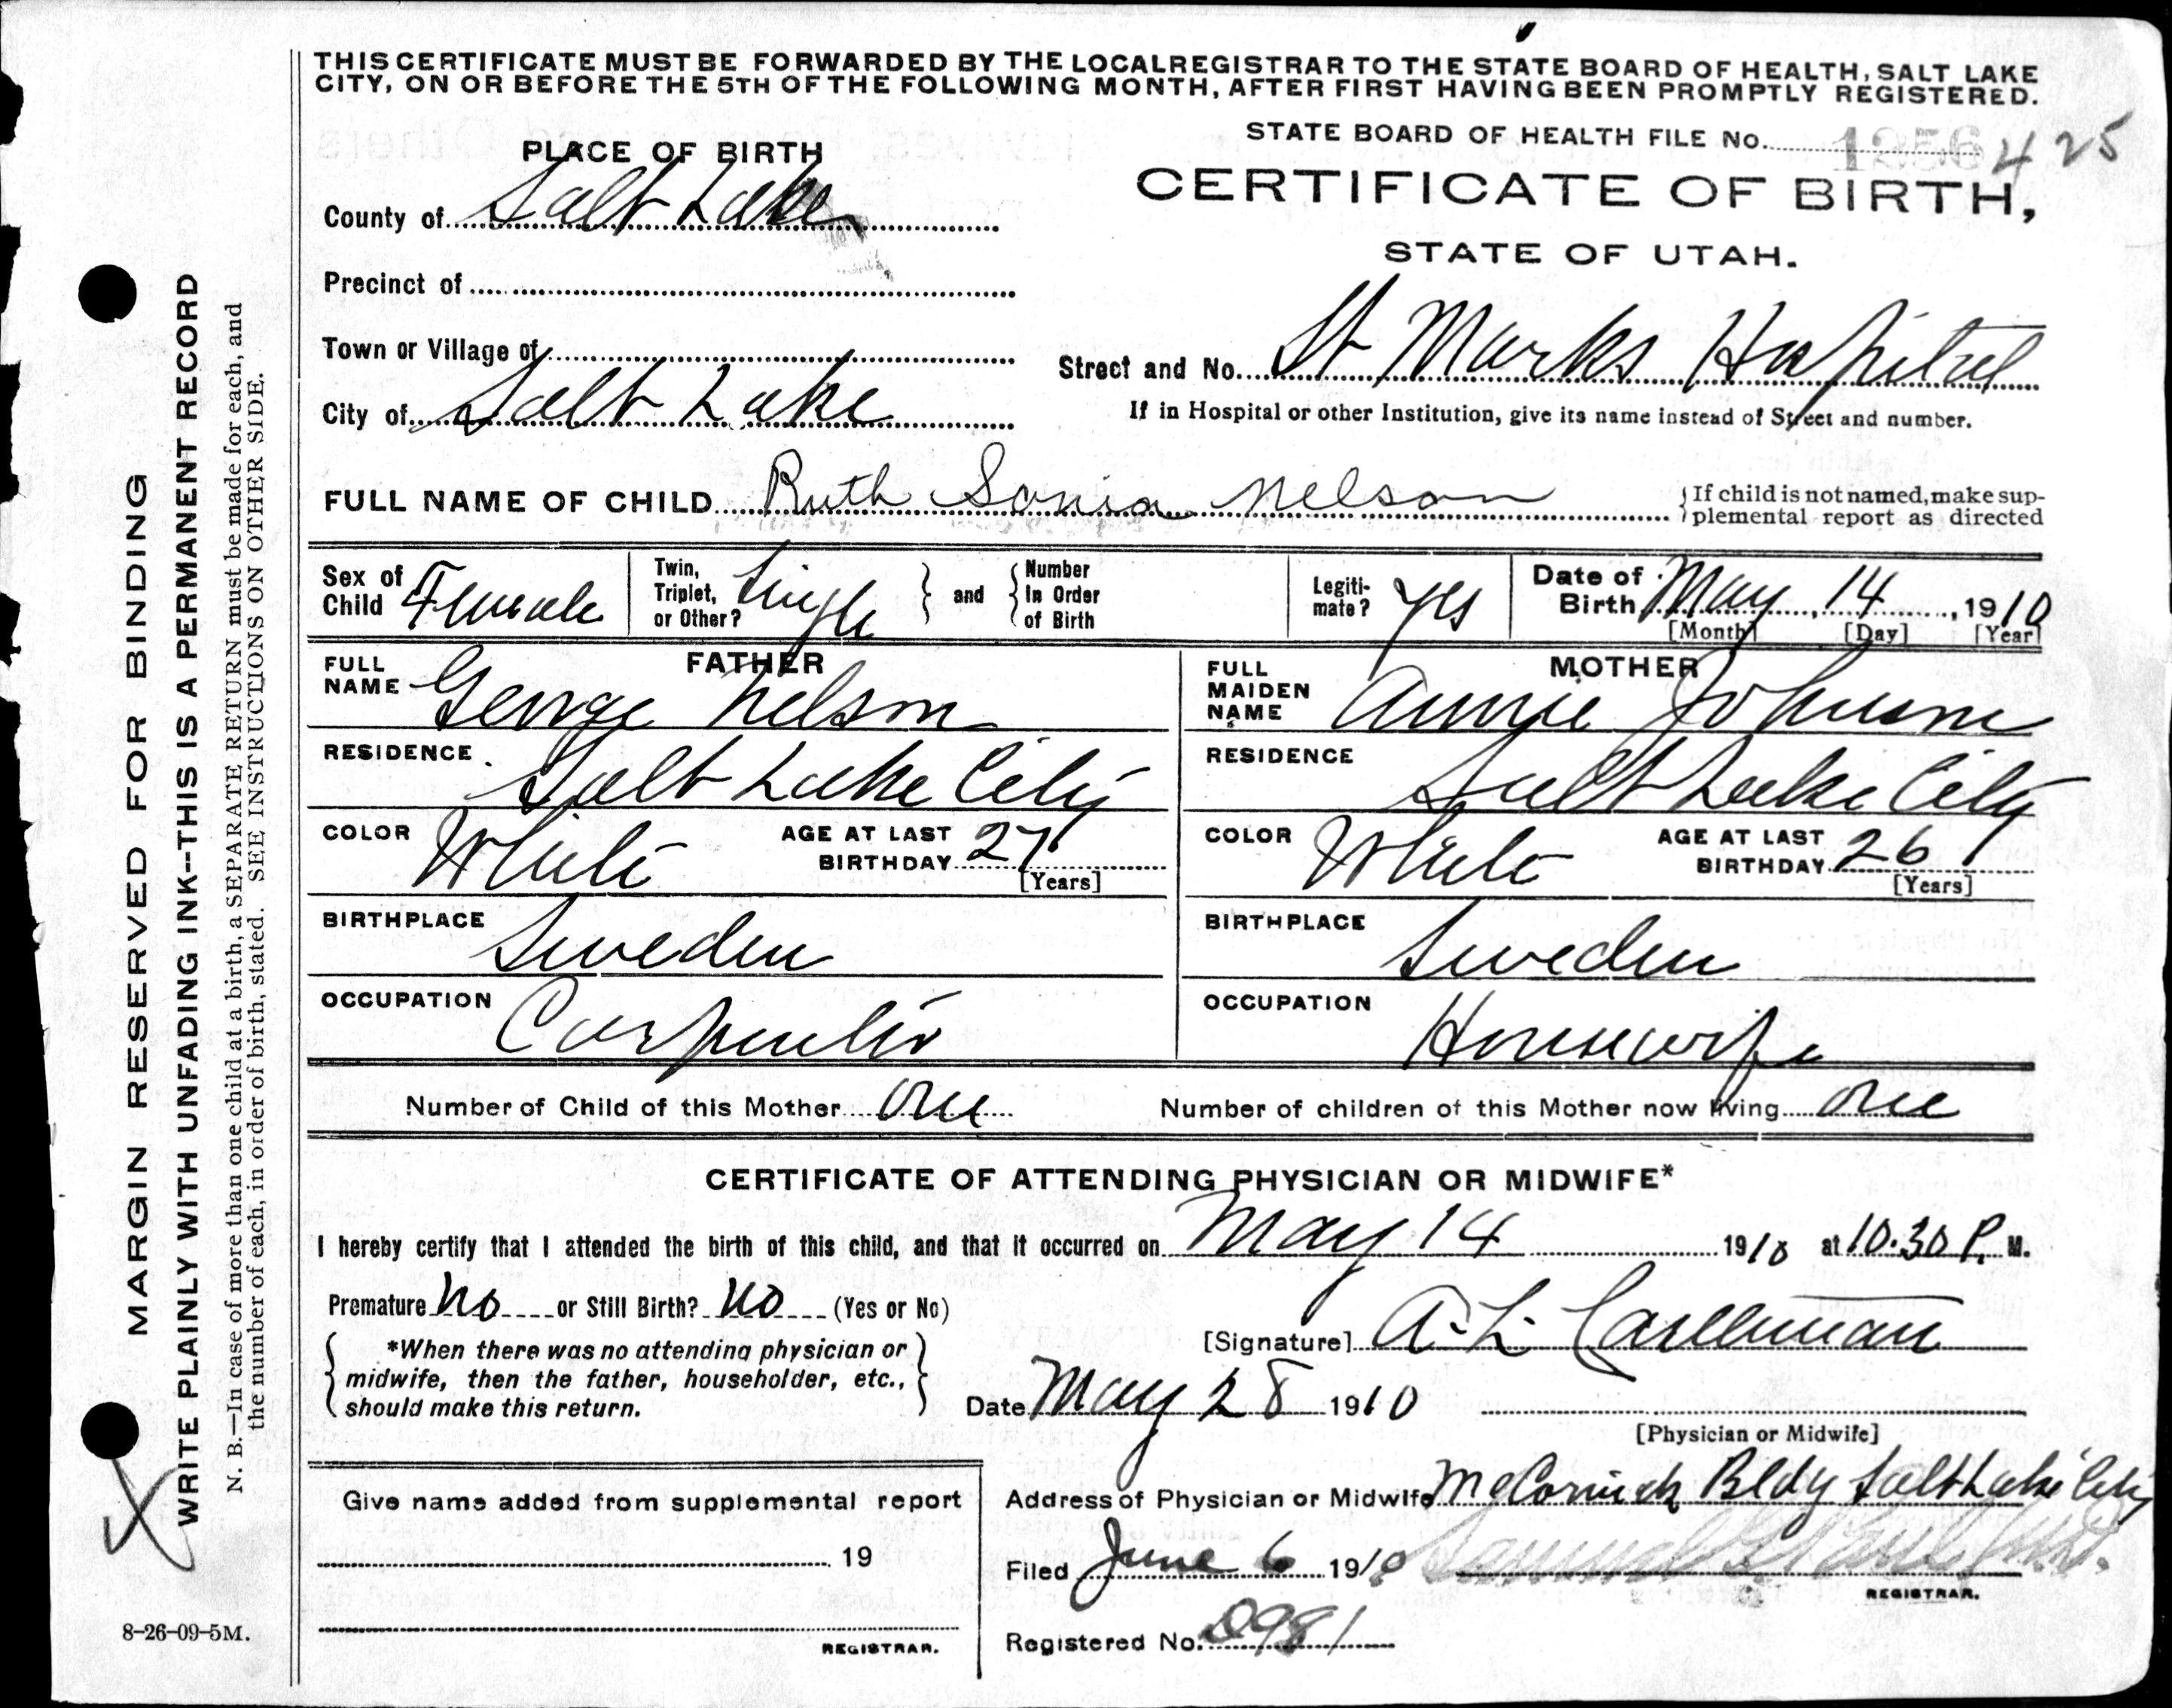 THIS CERTIFICATE MUST BE FORWARDED BY THE LOCAL REGISTRAR TO THE STATE BOARD OF HEALTH, SALT LAKE
CITY, ON OR BEFORE THE 5TH OF THE FOLLOWING MONTH, AFTER FIRST HAVING BEEN PROMPTLY REGISTERED.
STATE BOARD OF HEALTH FILE No. 1256 425
PLACE OF BIRTH
CERTIFICATE OF BIRTH,
STATE OF UTAH.
County of Salt Lake
Precinct of
Town or Village of
City of Salt Lake
Street and No. St Marks Hospital
If in Hospital or other Institution, give its name instead of Street and number.
FULL NAME OF CHILD Ruth Sonia Nelson
If child is not named, make sup-
plemental report as directed
Sex of Child Female
Twin, Triplet, or Other? Single
and Number In Order of Birth
Legiti-mate? Yes
Date of Birth May 14, 1910
[Month] [Day] [Year]
FATHER
FULL NAME George Nelson
RESIDENCE Salt Lake City
COLOR White AGE AT LAST BIRTHDAY 27 [Years]
BIRTHPLACE Sweden
OCCUPATION Carpenter
MOTHER
FULL MAIDEN NAME Annie Johnson
RESIDENCE Salt Lake City
COLOR White AGE AT LAST BIRTHDAY 26 [Years]
BIRTHPLACE Sweden
OCCUPATION Housewife
Number of Child of this Mother one Number of children of this Mother now living one
CERTIFICATE OF ATTENDING PHYSICIAN OR MIDWIFE*
I hereby certify that I attended the birth of this child, and that it occurred on May 14 1910 at 10.30 P. M.
Premature No or Still Birth? No (Yes or No)
*When there was no attending physician or
midwife, then the father, householder, etc.,
should make this return.
[Signature] A. L.
Date May 28 1910
[Physician or Midwife]
Address of Physician or Midwife McCornick Bldg Salt Lake City
Give name added from supplemental report
19
REGISTRAR.
Filed June 6 1910 Samuel G. Paul M.D.
REGISTRAR.
Registered No. 0981
MARGIN RESERVED FOR BINDING
WRITE PLAINLY WITH UNFADING INK--THIS IS A PERMANENT RECORD
N. B.—In case of more than one child at a birth, a SEPARATE RETURN must be made for each, and
the number of each, in order of birth, stated. SEE INSTRUCTIONS ON OTHER SIDE.
X
8-26-09-5M.